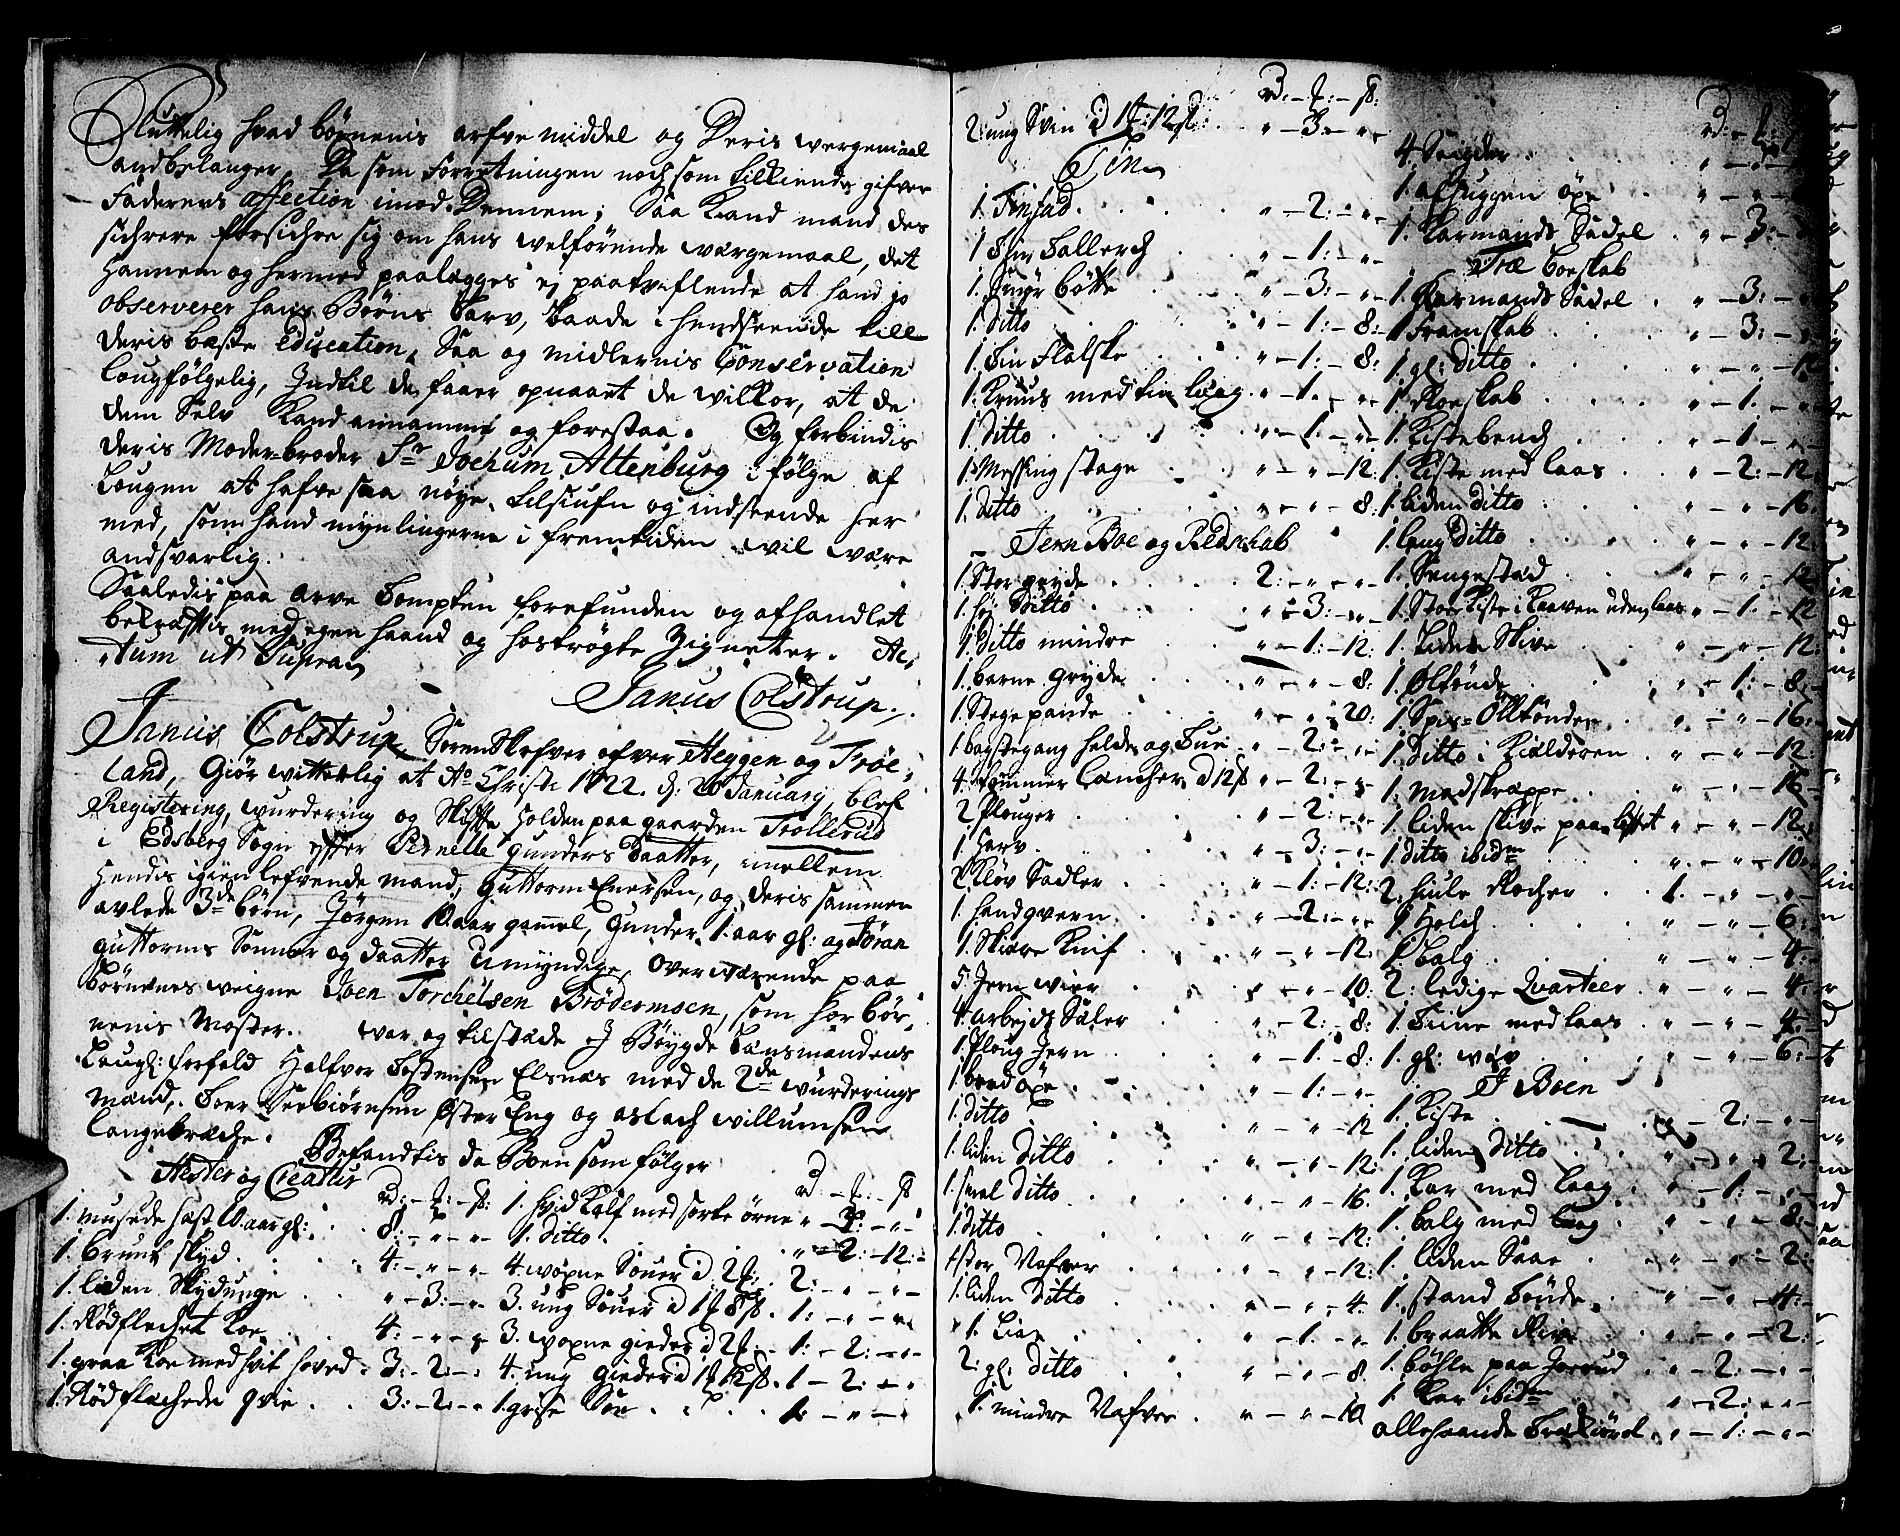 Sluttelig hvad børnenis arfve middel og Deris wergemaal
andbelanger, Da som Forretningen nochsom tilkiende gifver
Faderens affection imod Dennem; Saa Kand mand des
sichrere forsichre sig om hans welførende wærgemaal, det
Hannem og hermed paalegges ej paatviflende at hand jo
observerer hans Børns Tarv, baade i henseende till
Deris beste education, Saa og midlernis Conservation
lougfølgelig, Indtil de faaer opnaaet de wilkor, at de
dem Selv Kand annamme og forestaa. Og forbindis
Deris Moder-broder Sr Jochum Altenburg i følge af
Lougen at hafve saa nøye tilsiufn og indseende her
med, som hand mynlingerne i fremtiden wil være
andsvarlig.
Saaledis paa arve Tompten forefunden og afhandlet
bekræfftis med egen haand og hostrøgte Zigneter. Ac,
tum ut Supra
Janus Colstrup
Janus Colstrup Sorenskrifver ofver Heggen og Frøe,
land, Giør witterlig at Ao Christi 1722. d: 20 January, blef
Registering, wurdering og Skiffte holden paa gaarden Trollerud
i Edsberg Sogn effter Pernelle Gunders Daatter, imellem
hendis igien lefvende mand, Guttorm Enersen, og deris sammen
avlede 3de børn, Jørgen 10 aar gamel, Gunder 1. aar gl: og Jøran
Guttorms Sønner og daatter Umyndige, Overværende paa
børnenes weigne Joen Torchelsen Brødermoen, som har bør,
nenis Moster. war og tilstæde J Bøygde Lænsmandens
Laugl: forfald Halfvor Torstensen Elsnæs med de 2de wurderings
mænd, Toer Torbiørnsen Øster Eng og Aslach Willumsen
Langebræche. Befandtis da Boen som følger
Hester og Creattur
rd: - ƶ: - ß:
1. musede hest 10 aar gl: 8: - " - "
1. bruunt skyd 4: - " - "
1. liden Skydunge " - 3: - "
1. Rødflechet Koe 4: - " - "
1. graa Koe med hvit hoved 3: - 2: - "
1. Rødflechede qvie 3: - 2: - "
rd - ƶ: - ß
1. hvid Kalf med sorte ørne " - 3: - "
1. Ditto " - 2: - 12:
4. wopne Souer à 2ƶ 2: - " - "
3. ung Souer à 1ƶ 8ß 1: - " - "
3. wopne gieder à 2ƶ 1: - 2: - "
4. ung Gieder à 1ƶ 12ß 1 - 2: - "
1. grise Soe 1: - " - "
rd: - ƶ: - ß:
2: ung Svin à 1ƶ: 12ß: " - 3: - "
Tin
1. Tinfad " - 2: - "
1 Tin Tallerch " - 1: - "
1. Smør bøtte " - 3: - "
1. Ditto " - 1: - 8:
1. Tin Flaske " - 1: - 8:
1. Kruus med tin laag " - 1. - "
1. Ditto " - 1: - "
1. Messing stage " - " - 12:
1. Ditto " - " - 8:
Jern Boe og Redskab
1. Stor gryde 2: - " - "
1. høj Ditto " - 3: - "
1. Ditto mindre " - 1: - 12:
1. barne Gryde " - " - 8:
1. Stege pande " - " - 20:
1. bagstegang helde og Tue " - 2: - "
4. Tømmer Lencher à 12ß " - 2: - "
2 Plouger " - 2: - "
1. Harv " - 3: - "
2. Kløv Sadler " - 1: - 12:
1. handqvern " - 2: - "
1. Skiære Knif " - " - 12
5. Jern wier " - " - 10:
4. arbejds Sæler " - 2: - 8:
1. Ploug Jern " - 1. - 8:
1. bredøxe " - 1: - "
1. Ditto " - " - 12
1. liden Ditto " - " - 12:
1. smal Ditto " - " - 16.
1. Ditto " - " - 12:
1 stor Nafver " - " - 12:
1. liden Ditto " - " - 4:
1. Lia " - 1. - "
2: gl: ditto " - " - 8:
1. mindre Nafver " - " - 10
rd: - ƶ:
4 Seigder
1. afhuggen øxe
1. Karmands Sadel " - 3:
Træ boeskab
1. Karmands Sadel " - 3: - "
1 Framskab " - 3: - "
1. gl: Ditto " - " - 12
1. Roeskab " - 1. - "
1. Kistebench " - 1. - "
1. Kiste med laas " - 2: - 12
1. liden ditto " - " - 16.
1. lang Ditto " - " - 12:
1. Sengestæd " - " - 12
1. Stor Kiste i Kaaven uden laas " - 1. - 12
1. Liden Skive " - " - 12:
1. Øltønde " - 1: - 8:
1. Spis-Ølltønder " - " - 16:
1. ditto i Kielderen " - " - 12:
1. Madskreppe " - " - 16
1. liden skive paa lofftet " - " - 12
1. ditto ibidm " - " - 10
2. hiule Rocher 1. - " - "
1 Holch " - " - 6:
1 balg " - " - 4:
2: ledige Qvarteer " - " - 4:
1. Tiine med laas " - " - 4:
1. gl: wæv " - " - 6:
J Boen
1. Kiste " - 2: - "
1. liden Ditto " - " - 2:
1. Kar med laag " - 1: - "
1. balg med laag " - " - 8:
1. liden Saae " - " - 2:
1. stand Tønde " - " - 4:
1. braatte Rive " - " - 2:
1. bøhle paa Jorrud " - 2: - "
1 Kar ibidm " - 2: - "
allehaande Trækiørel " - 1: - "